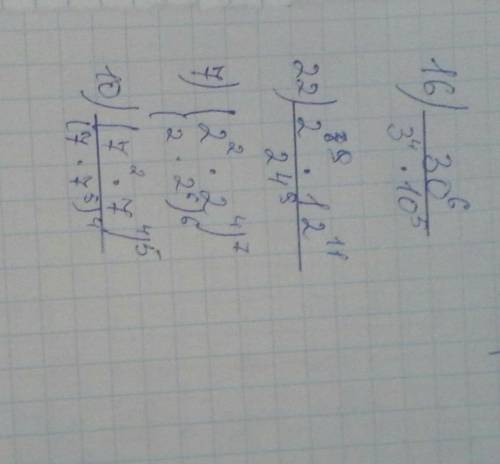 16) 30⁶
3⁴ · 10⁵
22) 2 · 12¹¹
24
7) (2² · 2⁴)⁷
(2 · 2⁵)⁶
10) (7² · 7⁴)⁵
(7 · 7⁵)⁴